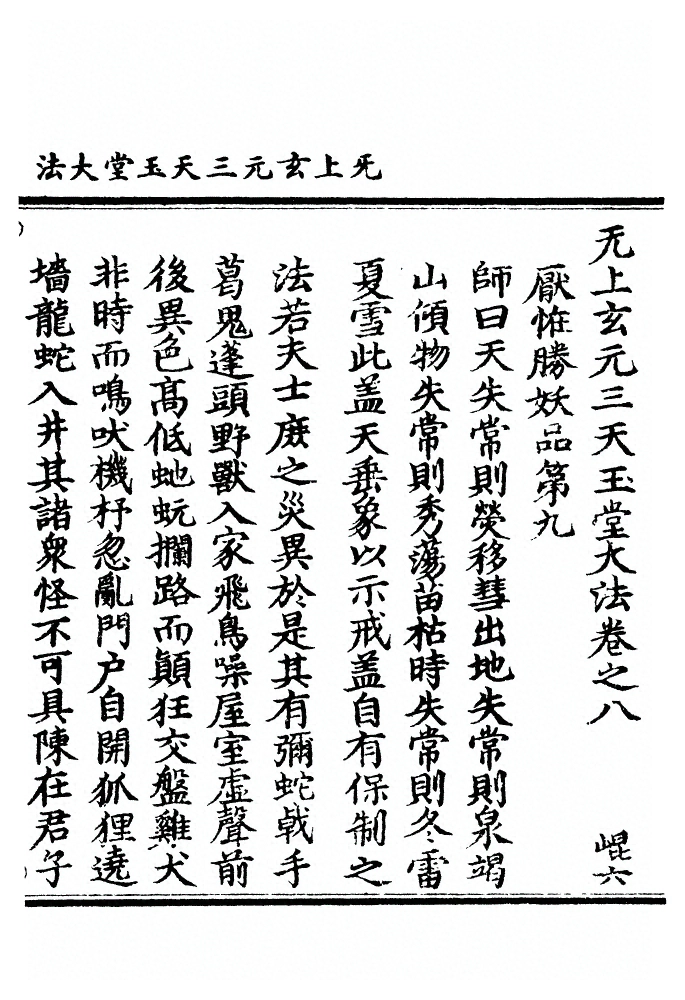 法大堂玉天三元玄上旡
旡上玄元三天玉堂大法卷之八　崐六
厭恠勝妖品第九
師曰天失常則熒移彗出地失常則泉竭
山傾物失常則秀蕩苗枯時失常則冬雷
夏雪此盖天乗象以示戒盖自有保制之
法若夫士庶之災異於是其有彌蛇戟手
葛鬼蓬頭野獸入家飛鳥噪屋室虛聲前
後異色高低虵蚖攔路而顛狂交盤雞犬
非時而鳴吠機杼忽亂門户自開狐狸遶
墻龍蛇入井其諸衆怪不可具陳在君子